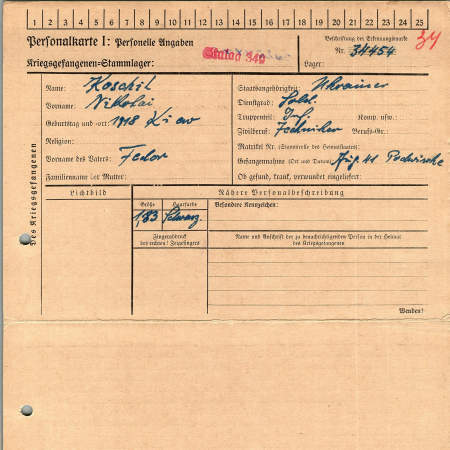 1 2 3 4 5 6 7 8 9 10 11 12 13 14 15 16 17 18 19 20 21 22 23 24 25
Personalkarte I: Personelle Angaben
Beschriftung der Erkennungsmarke
34
Stalag 340
Nr. 34454
Kriegsgefangenen-Stammlager:
Lager:
Des Kriegsgefangenen
Name: Koschil
Vorname: Nikolai
Geburtstag und -ort: 1918 Kiew
Religion:
Vorname des Vaters: Fedor
Familienname der Mutter:
Staatsangehörigkeit: Ukrainer
Dienstgrad: Sold.
Truppenteil: Inf. Komp. usw.:
Zivilberuf: Techniker Berufs-Nr.:
Matrikel Nr. (Stammrolle des Heimatstaates):
Gefangennahme (Ort und Datum): Aug. 41
Ob gesund, krank, verwundet eingeliefert:
Lichtbild
Nähere Personalbeschreibung
Größe Haarfarbe
1,83 schwarz
Besondere Kennzeichen:
Fingerabdruck
des rechten! Zeigefingers
Name und Anschrift der zu benachrichtigenden Person in der Heimat
des Kriegsgefangenen
Wenden!